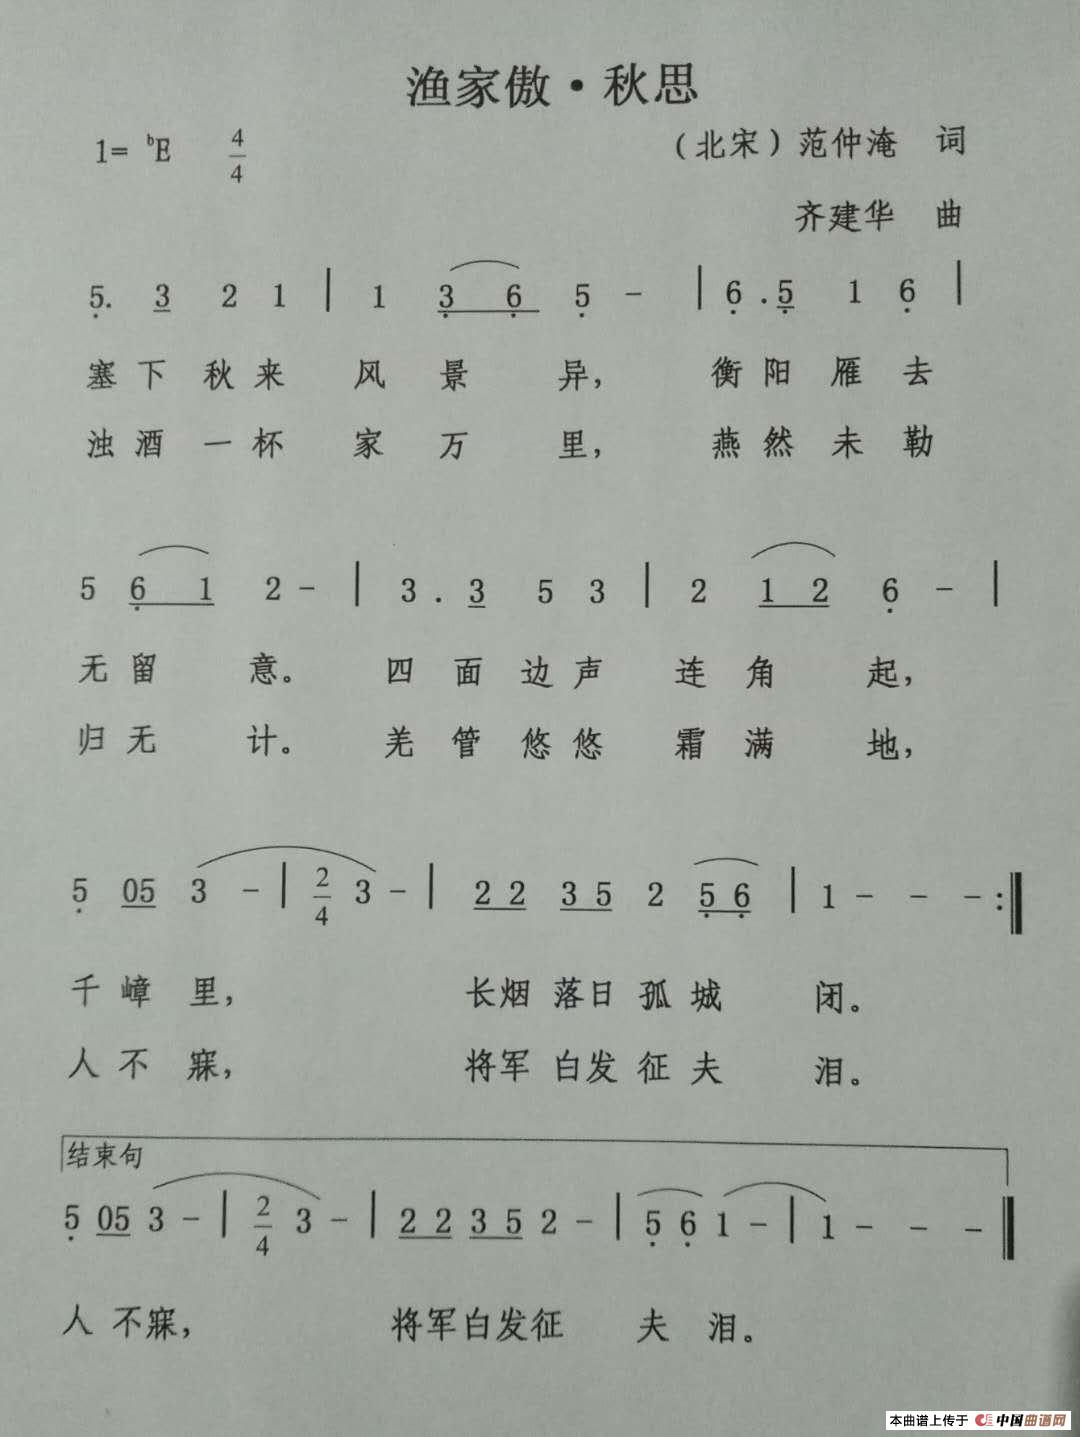 渔家傲·秋思
1= ᵇE 4/4 （北宋）范仲淹 词
齐建华 曲
5. 3 2 1 | 1 3 6 5 - | 6 . 5 1 6 |
塞下秋来 风景异， 衡阳雁去
浊酒一杯 家万里， 燕然未勒
5 6 1 2 - | 3 . 3 5 3 | 2 1 2 6 - |
无留意。 四面边声 连角起，
归无计。 羌管悠悠 霜满地，
5 05 3 - | 2/4 3 - | 2 2 3 5 2 5 6 | 1 - - - :‖
千嶂里， 长烟落日孤城 闭。
人不寐， 将军白发征夫 泪。
结束句
5 05 3 - | 2/4 3 - | 2 2 3 5 2 - | 5 6 1 - | 1 - - - ‖
人不寐， 将军白发征 夫泪。
本曲谱上传于 中国曲谱网